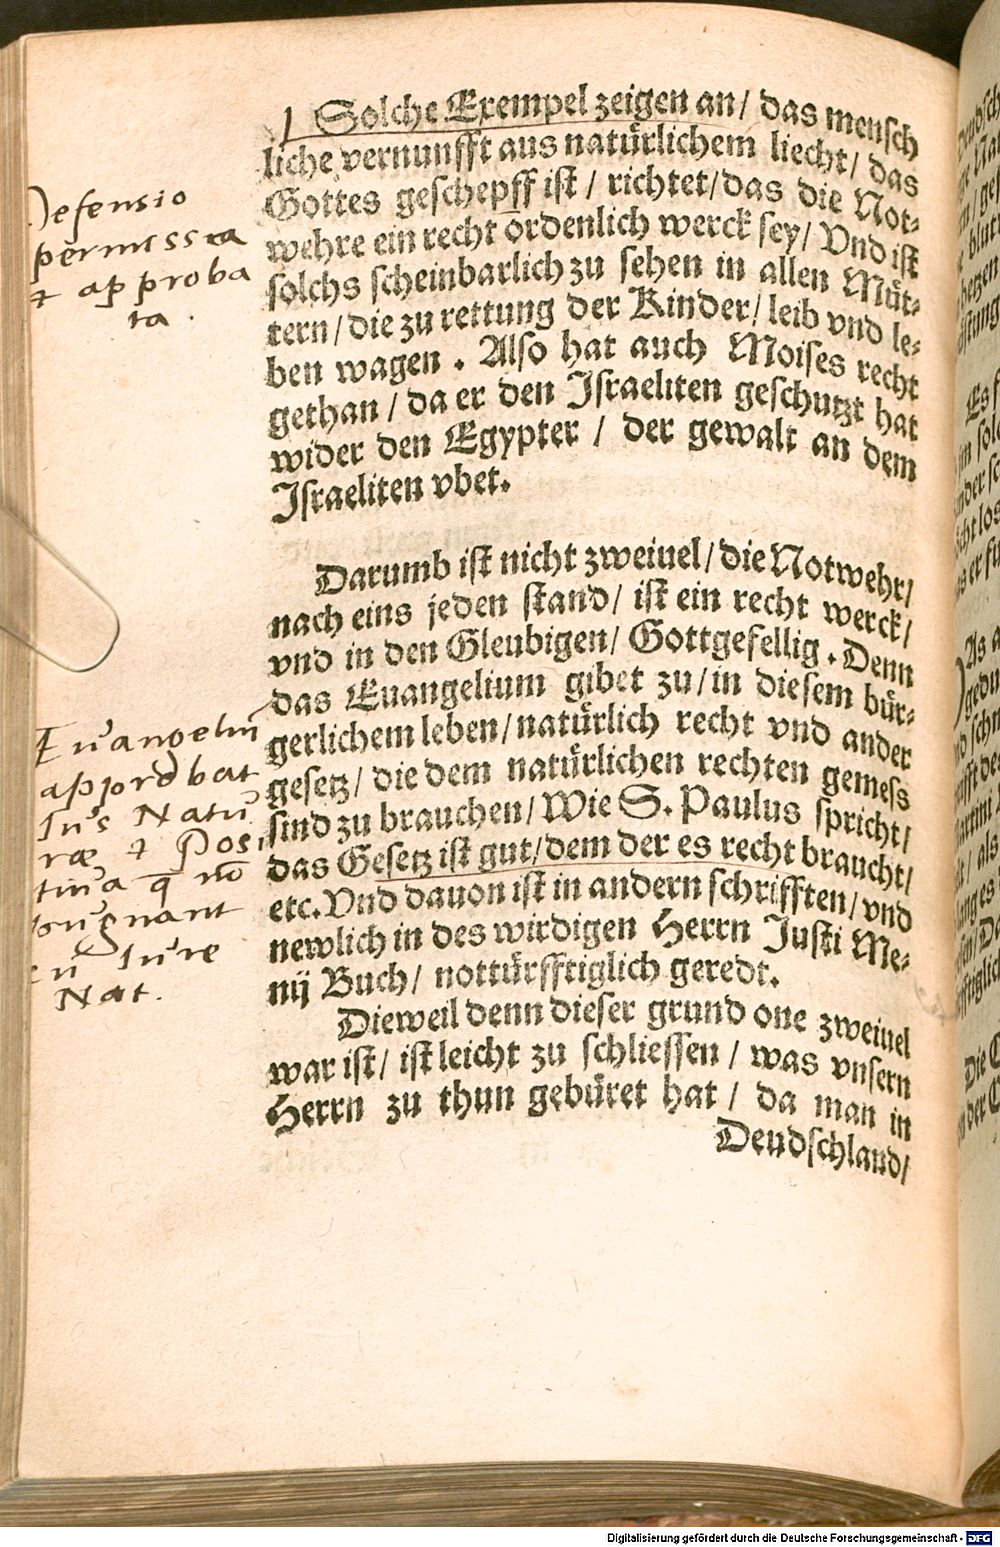 Solche Exempel zeigen an/ das mensch
liche vernunfft aus natürlichem liecht/ das
Gottes geschepff ist/ richtet/das die Not-
wehre ein recht ordenlich werck sey/ Vnd ist
solchs scheinbarlich zu sehen in allen Müt-
tern/die zu rettung der Kinder/ leib vnd le-
ben wagen. Also hat auch Moises recht
gethan/ da er den Israeliten geschutzt hat
wider den Egypter/ der gewalt an dem
Israeliten vbet.
Darumb ist nicht zweiuel/die Notwehr/
nach eins jeden stand/ ist ein recht werck/
vnd in den Gleubigen/ Gottgefellig. Denn
das Euangelium gibet zu/in diesem bür-
gerlichem leben/natürlich recht vnd ander
gesetz/ die dem natürlichen rechten gemess
sind zu brauchen/Wie S. Paulus spricht/
das Gesetz ist gut/dem der es recht braucht/
etc. Vnd dauon ist in andern schrifften/vnd
newlich in des wirdigen Herrn Justi Me-
nij Buch/ nottürfftiglich geredt.
Dieweil denn dieser grund one zweiuel
war ist/ ist leicht zu schliessen/ was vnsern
Herrn zu thun gebüret hat/ da man in
Deudschland/
Defensio
permissa
et approba
ta.
Euangeliū
approbat
Ius Natu
ræ et Posi
tiua q̄ nō
pugnant
cū Iure
Nat.
Digitalisierung gefördert durch die Deutsche Forschungsgemeinschaft - DFG